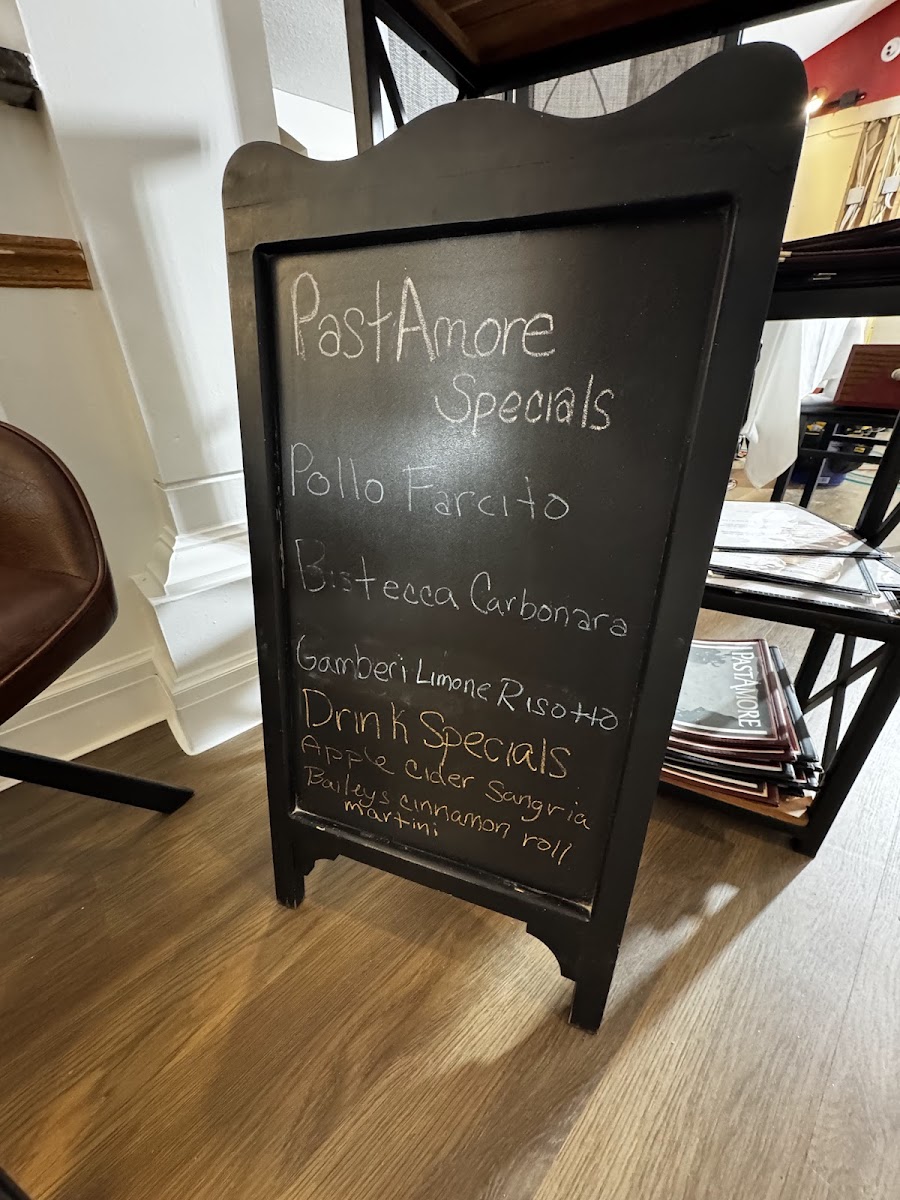 PastAmore
Specials
Pollo Farcito
Bistecca Carbonara
Gamberi Limone Risotto
Drink Specials
Apple cider Sangria
Baileys cinnamon roll
martini
PASTAMORE